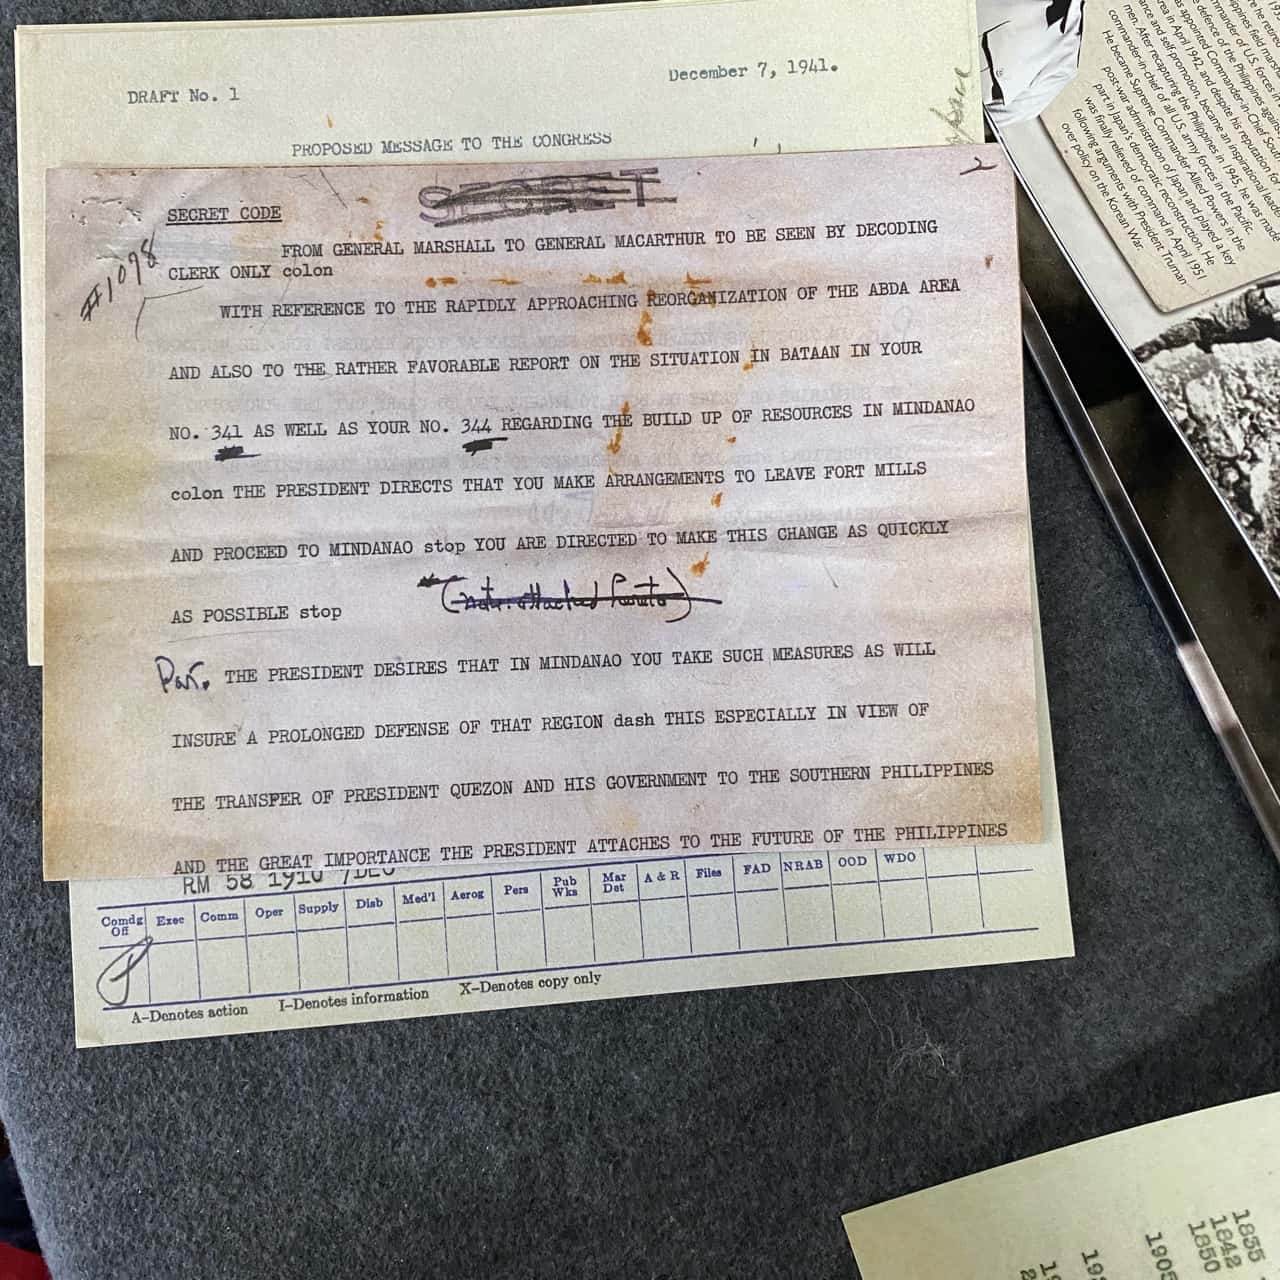 DRAFT No. 1
December 7, 1941.
PROPOSED MESSAGE TO THE CONGRESS
SECRET
2
#1098
SECRET CODE
FROM GENERAL MARSHALL TO GENERAL MACARTHUR TO BE SEEN BY DECODING
CLERK ONLY colon
WITH REFERENCE TO THE RAPIDLY APPROACHING REORGANIZATION OF THE ABDA AREA
AND ALSO TO THE RATHER FAVORABLE REPORT ON THE SITUATION IN BATAAN IN YOUR
NO. 341 AS WELL AS YOUR NO. 344 REGARDING THE BUILD UP OF RESOURCES IN MINDANAO
colon THE PRESIDENT DIRECTS THAT YOU MAKE ARRANGEMENTS TO LEAVE FORT MILLS
AND PROCEED TO MINDANAO stop YOU ARE DIRECTED TO MAKE THIS CHANGE AS QUICKLY
AS POSSIBLE stop
Par. THE PRESIDENT DESIRES THAT IN MINDANAO YOU TAKE SUCH MEASURES AS WILL
INSURE A PROLONGED DEFENSE OF THAT REGION dash THIS ESPECIALLY IN VIEW OF
THE TRANSFER OF PRESIDENT QUEZON AND HIS GOVERNMENT TO THE SOUTHERN PHILIPPINES
AND THE GREAT IMPORTANCE THE PRESIDENT ATTACHES TO THE FUTURE OF THE PHILIPPINES
RM 58 1910 7DEC
Comdg Off Exec Comm Oper Supply Disb Med'l Aerog Pers Pub Wks Mar Det A & R Files FAD NRAB OOD WDO
A–Denotes action I–Denotes information X–Denotes copy only
he retired
Philippines field marshal
commander of U.S. forces in
defence of the Philippines against
as appointed Commander-in-Chief South
area in April 1942, and despite his reputation for
ance and self-promotion, became an inspirational leader
men. After recapturing the Philippines in 1945, he was made
commander-in-chief of all U.S. army forces in the Pacific.
He became Supreme Commander Allied Powers in the
post-war administration of Japan and played a key
part in Japan's democratic reconstruction. He
was finally relieved of command in April 1951
following arguments with President Truman
over policy on the Korean War.
1835
1842
1850
1905